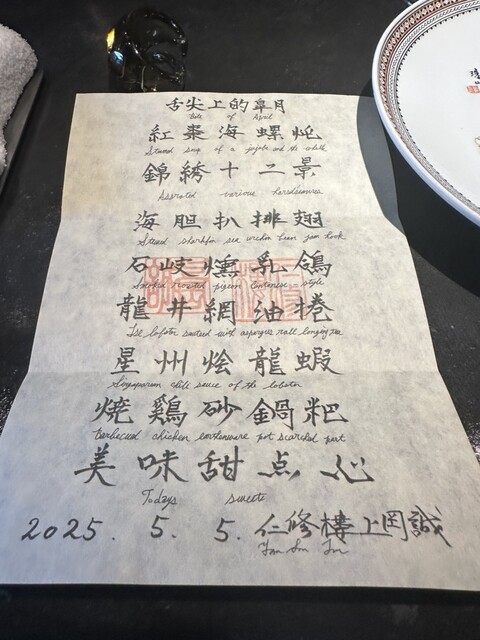 舌尖上的皐月
bite of April
紅棗海螺炖
Steamed soup of a jujube and the whelk
錦綉十二景
Assorted various horsdoeuvres
海胆扒排翅
Stead sharkfin sea urchin
石岐燻乳鴿
Smoked roasted pigeon Cantonese style
龍井網油捲
Ise lobster sauteed with asparagus roll longjing tea
星州烩龍蝦
Singaporean chili sauce of the lobster
焼鶏砂鍋粑
Barbecued chicken earthenware pot scorched part
美味甜点心
Todays sweets
2025. 5. 5. 仁修樓上岡誠